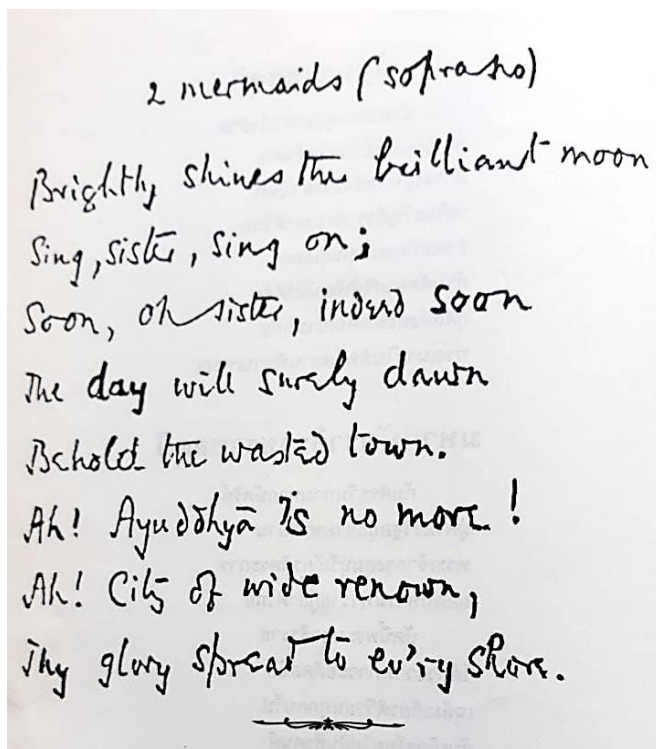 2 mermaids (soprano)
Brightly shines the brilliant moon
Sing, sister, sing on;
Soon, oh sister, indeed soon
The day will surely dawn
Behold the wasted town.
Ah! Ayuddhyā is no more!
Ah! City of wide renown,
Thy glory spread to ev'ry shore.